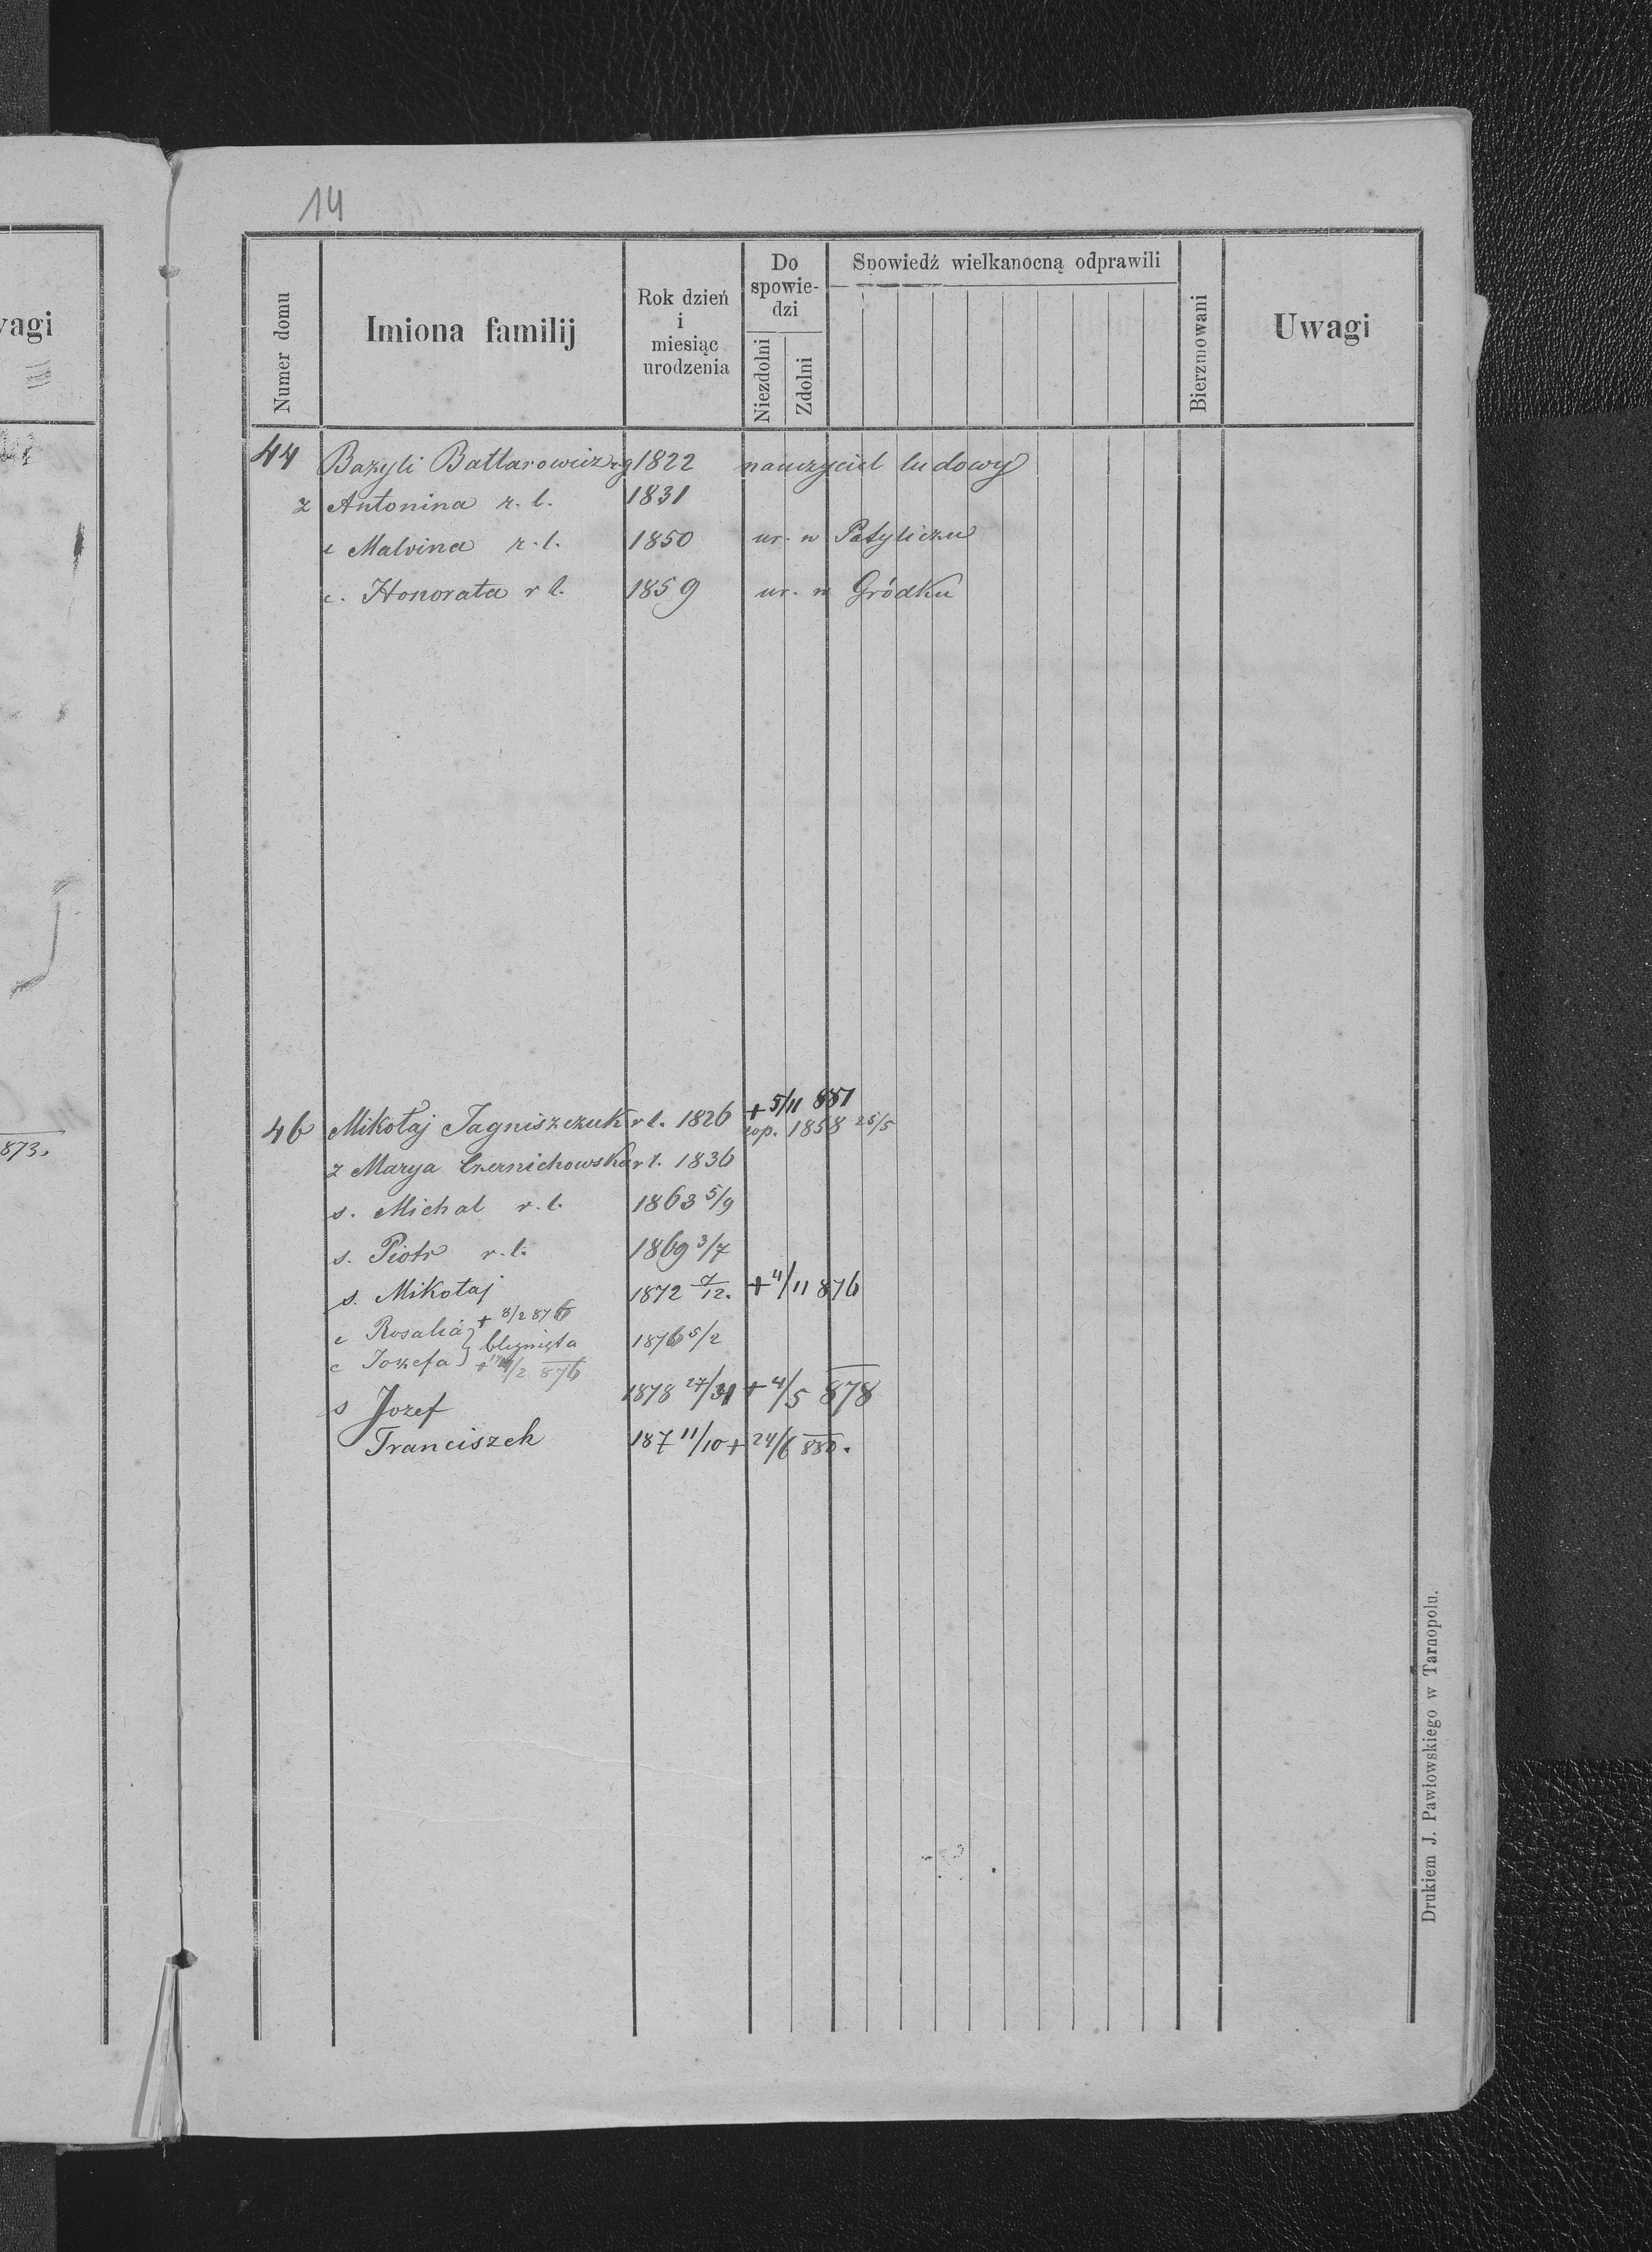 vagi
873.
14
Numer domu
Imiona familij
Rok dzień
i
miesiąc
urodzenia
Do
spowie-
dzi
Niezdolni
Zdolni
Spowiedź wielkanocną odprawili
Bierzmowani
Uwagi
44 Bazyli Battarowicz r.g 1822 nauczyciel ludowy
z Antonina r. l. 1831
c Malvina r. l. 1850 ur. w Potyliczu
c. Honorata r l. 1859 ur. w Gródku
+ 5/11 881
46 Mikołaj Jagniszczuk r l. 1826 cop. 1858 25/5
z Marya Czernichowska r l. 1836
s. Michał r. l. 1863 5/9
s. Piotr r. l. 1869 3/7
s. Mikołaj 1872 7/12. + 4/11 876
c Rosalia + 8/2 876
bliznięta 1876 5/2
c Jozefa + /2 876
s Jozef 1878 27/ + 4/5 878
Franciszek 187 11/10 + 24/6 880.
Drukiem J. Pawłowskiego w Tarnopolu.